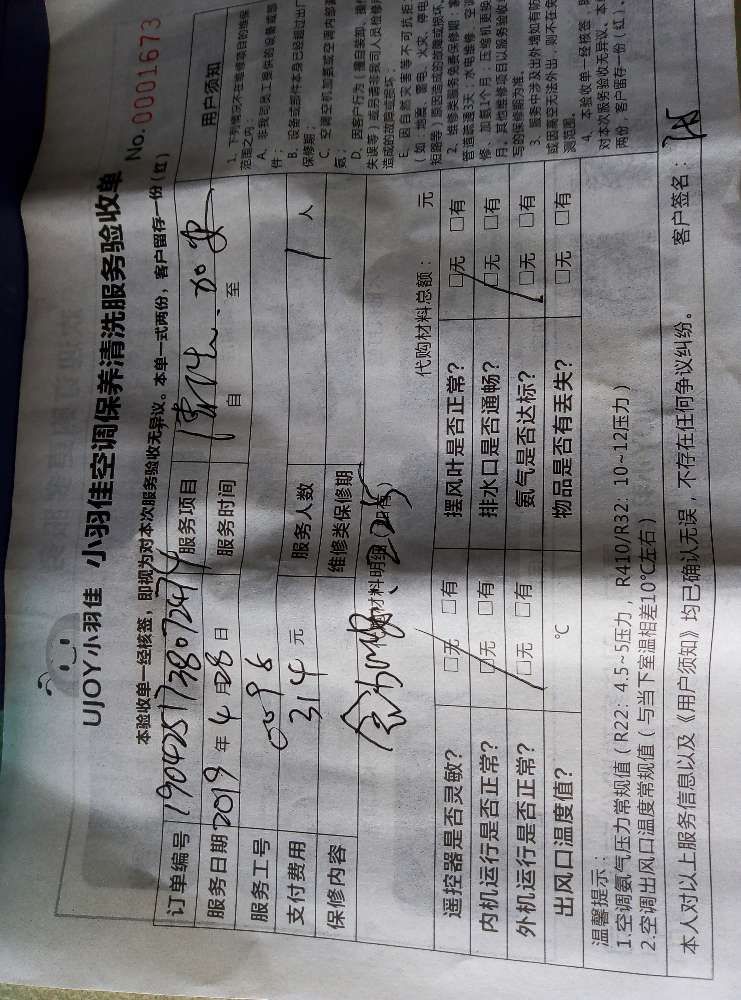 UJOY小羽佳 小羽佳空调保养清洗服务验收单
No. 0001673
本验收单一经核签，即视为对本次服务验收无异议。本单一式两份，客户留存一份（红）
订单编号 服务项目
服务日期 2019 年 4 月 28 日 服务时间 自 至
服务工号 0096
支付费用 314 元 服务人数 1 人
保修内容 维修类保修期
代购材料总额： 元
遥控器是否灵敏？ □无 □有 摆风叶是否正常？ □无 □有
内机运行是否正常？ □无 □有 排水口是否通畅？ □无 □有
外机运行是否正常？ □无 □有 氨气是否达标？ □无 □有
出风口温度值？ ℃ 物品是否有丢失？ □无 □有
温馨提示：
1.空调氨气压力常规值（R22：4.5~5压力， R410/R32：10~12压力）
2.空调出风口温度常规值（与当下室温相差10℃左右）
本人对以上服务信息以及《用户须知》均已确认无误，不存在任何争议纠纷。 客户签名：
用户须知
1、下列情况不在维修项目的维保
范围之内：
A、非我司员工提供的设备或部
件；
B、设备或部件本身已经超过出厂
保修期；
C、空调空机加氨或空调内部
D、因客户行为（擅自装卸、操
失误等）或另请非我司人员检修
造成的故障或损坏；
E、因自然灾害等不可抗拒
（如：地震、雷电、火灾、停电
短路等）原因造成的故障或损坏。
2、维修类服务免费保修期：
管道疏通3天；水电维修、空
修、加氨1个月；压缩机更换
月。其他维修项目以服务验收
写的保修期为准。
3、服务中涉及出外墙如有防
或因高空无法外出，则不在
测范围。
4、本验收单一经核签，即
对本次服务验收无异议。本
两份，客户留存一份（红）。